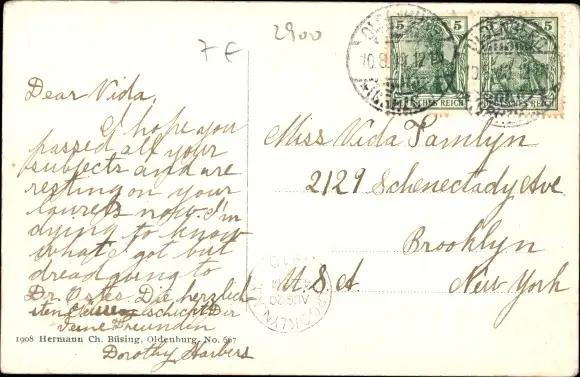 7 E
2900
5 5
5 5
DEUTSCHES REICH
DEUTSCHES REICH
Dear Vida,
I hope you
passed all your
subjects and are
resting on your
laurels now. I'm
dying to know
what I got but
dread going to
Dr. Die herzlich-
sten schickt Dir
deine Freundin
Dorothy Harbers
Miss Vida Tamlyn
2129 Schenectady Ave.
Brooklyn
U.S.A. New York
BROOKLYN
AUG 20
1910
1908 Hermann Ch. Büsing, Oldenburg. No. 667